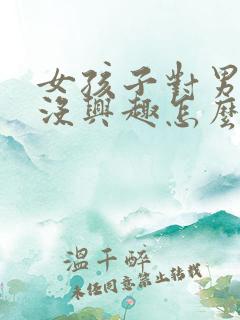 女孩子對男
沒興趣怎麼
溫千醉
未經同意禁止轉載